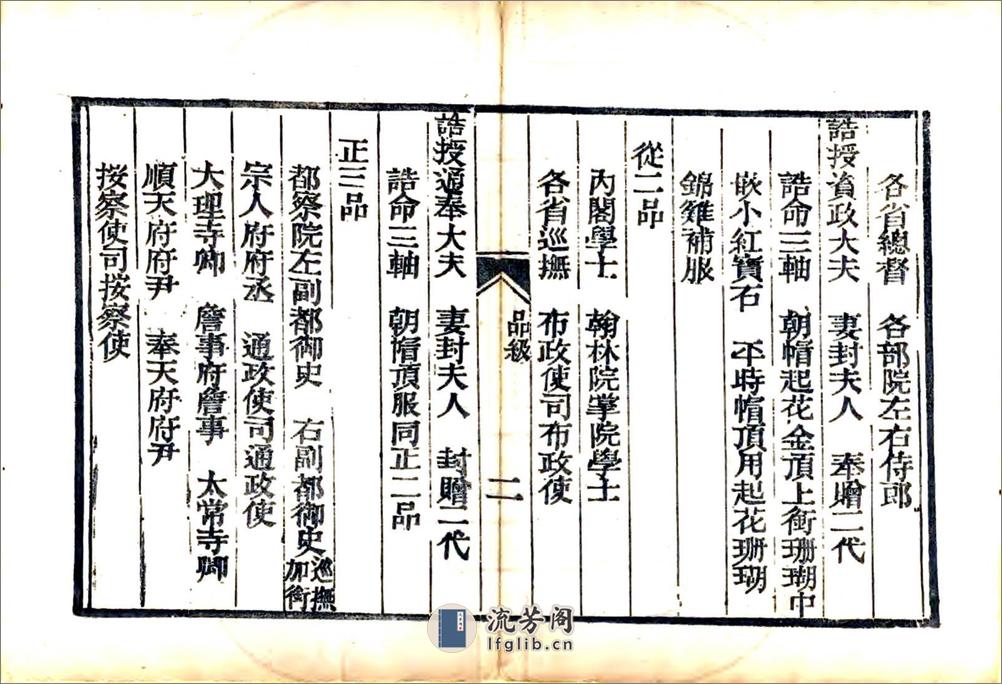 各省總督　各部院左右侍郎
誥授資政大夫　妻封夫人　奉贈二代
誥命三軸　朝帽起花金頂上銜珊瑚中
嵌小紅寶石　平時帽頂用起花珊瑚
錦雞補服
從二品
內閣學士　翰林院掌院學士
各省巡撫　布政使司布政使
品級　二
誥授通奉大夫　妻封夫人　封贈二代
誥命三軸　朝帽頂服同正二品
正三品
都察院左副都御史　右副都御史巡撫加銜
宗人府府丞　通政使司通政使
大理寺卿　詹事府詹事　太常寺卿
順天府府尹　奉天府府尹
按察使司按察使
流芳阁
lfglib.cn